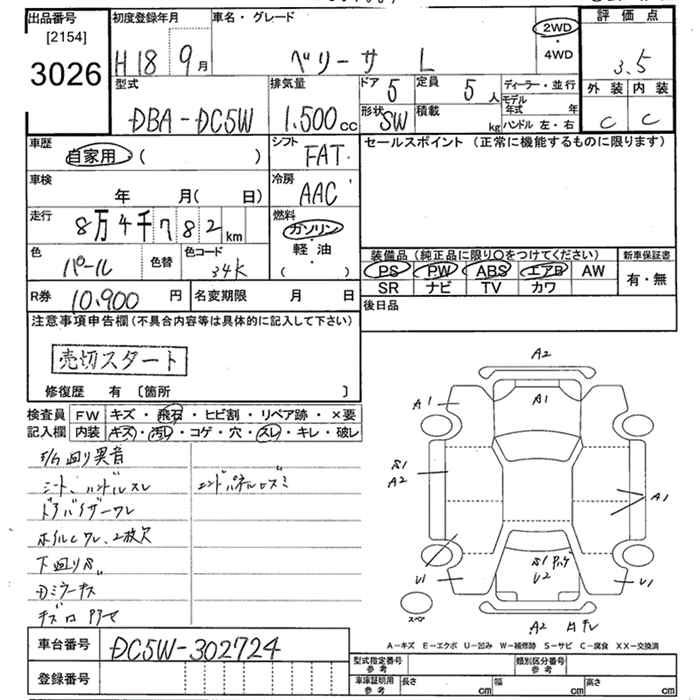 出品番号 初度登録年月 車名・グレード 評価点
[2154]
3026 H18 9月 ベリーサ L 2WD・4WD 3.5
型式 排気量 ドア 5 定員 5人 ディーラー・並行 外装 内装
DBA-DC5W 1.500cc 形状 SW 積載 kg モデル年式 年 C C
ハンドル 左・右
車歴 シフト セールスポイント (正常に機能するものに限ります)
自家用 ( ) FAT
車検 冷房
年 月( 日) AAC
走行 燃料
8万4千782km ガソリン・軽油
色 色替 色コード ( )
パール 34K
装備品 (純正品に限り〇をつけてください) 新車保証書
PS PW ABS エアB AW 有・無
SR ナビ TV カワ
R券 10.900円 名変期限 月 日 後日品
注意事項申告欄(不具合内容等は具体的に記入して下さい)
売切スタート
修復歴 有 〔箇所 〕
検査員 FW キズ・飛石・ヒビ割・リペア跡・×要
記入欄 内装 キズ・汚レ・コゲ・穴・スレ・キレ・破レ
異音
シート、ハンドルスレ
下回りサビ
A2
A1
A1
S1
A2
A1
U1
S1
U2
U1
スペア
A2
A-キズ E-エクボ U-凹み W-補修跡 S-サビ C-腐食 XX-交換済
車台番号 DC5W-302724
登録番号
型式指定番号 参考 類別区分番号 参考
車庫証明用 参考 長さ cm 幅 cm 高さ cm